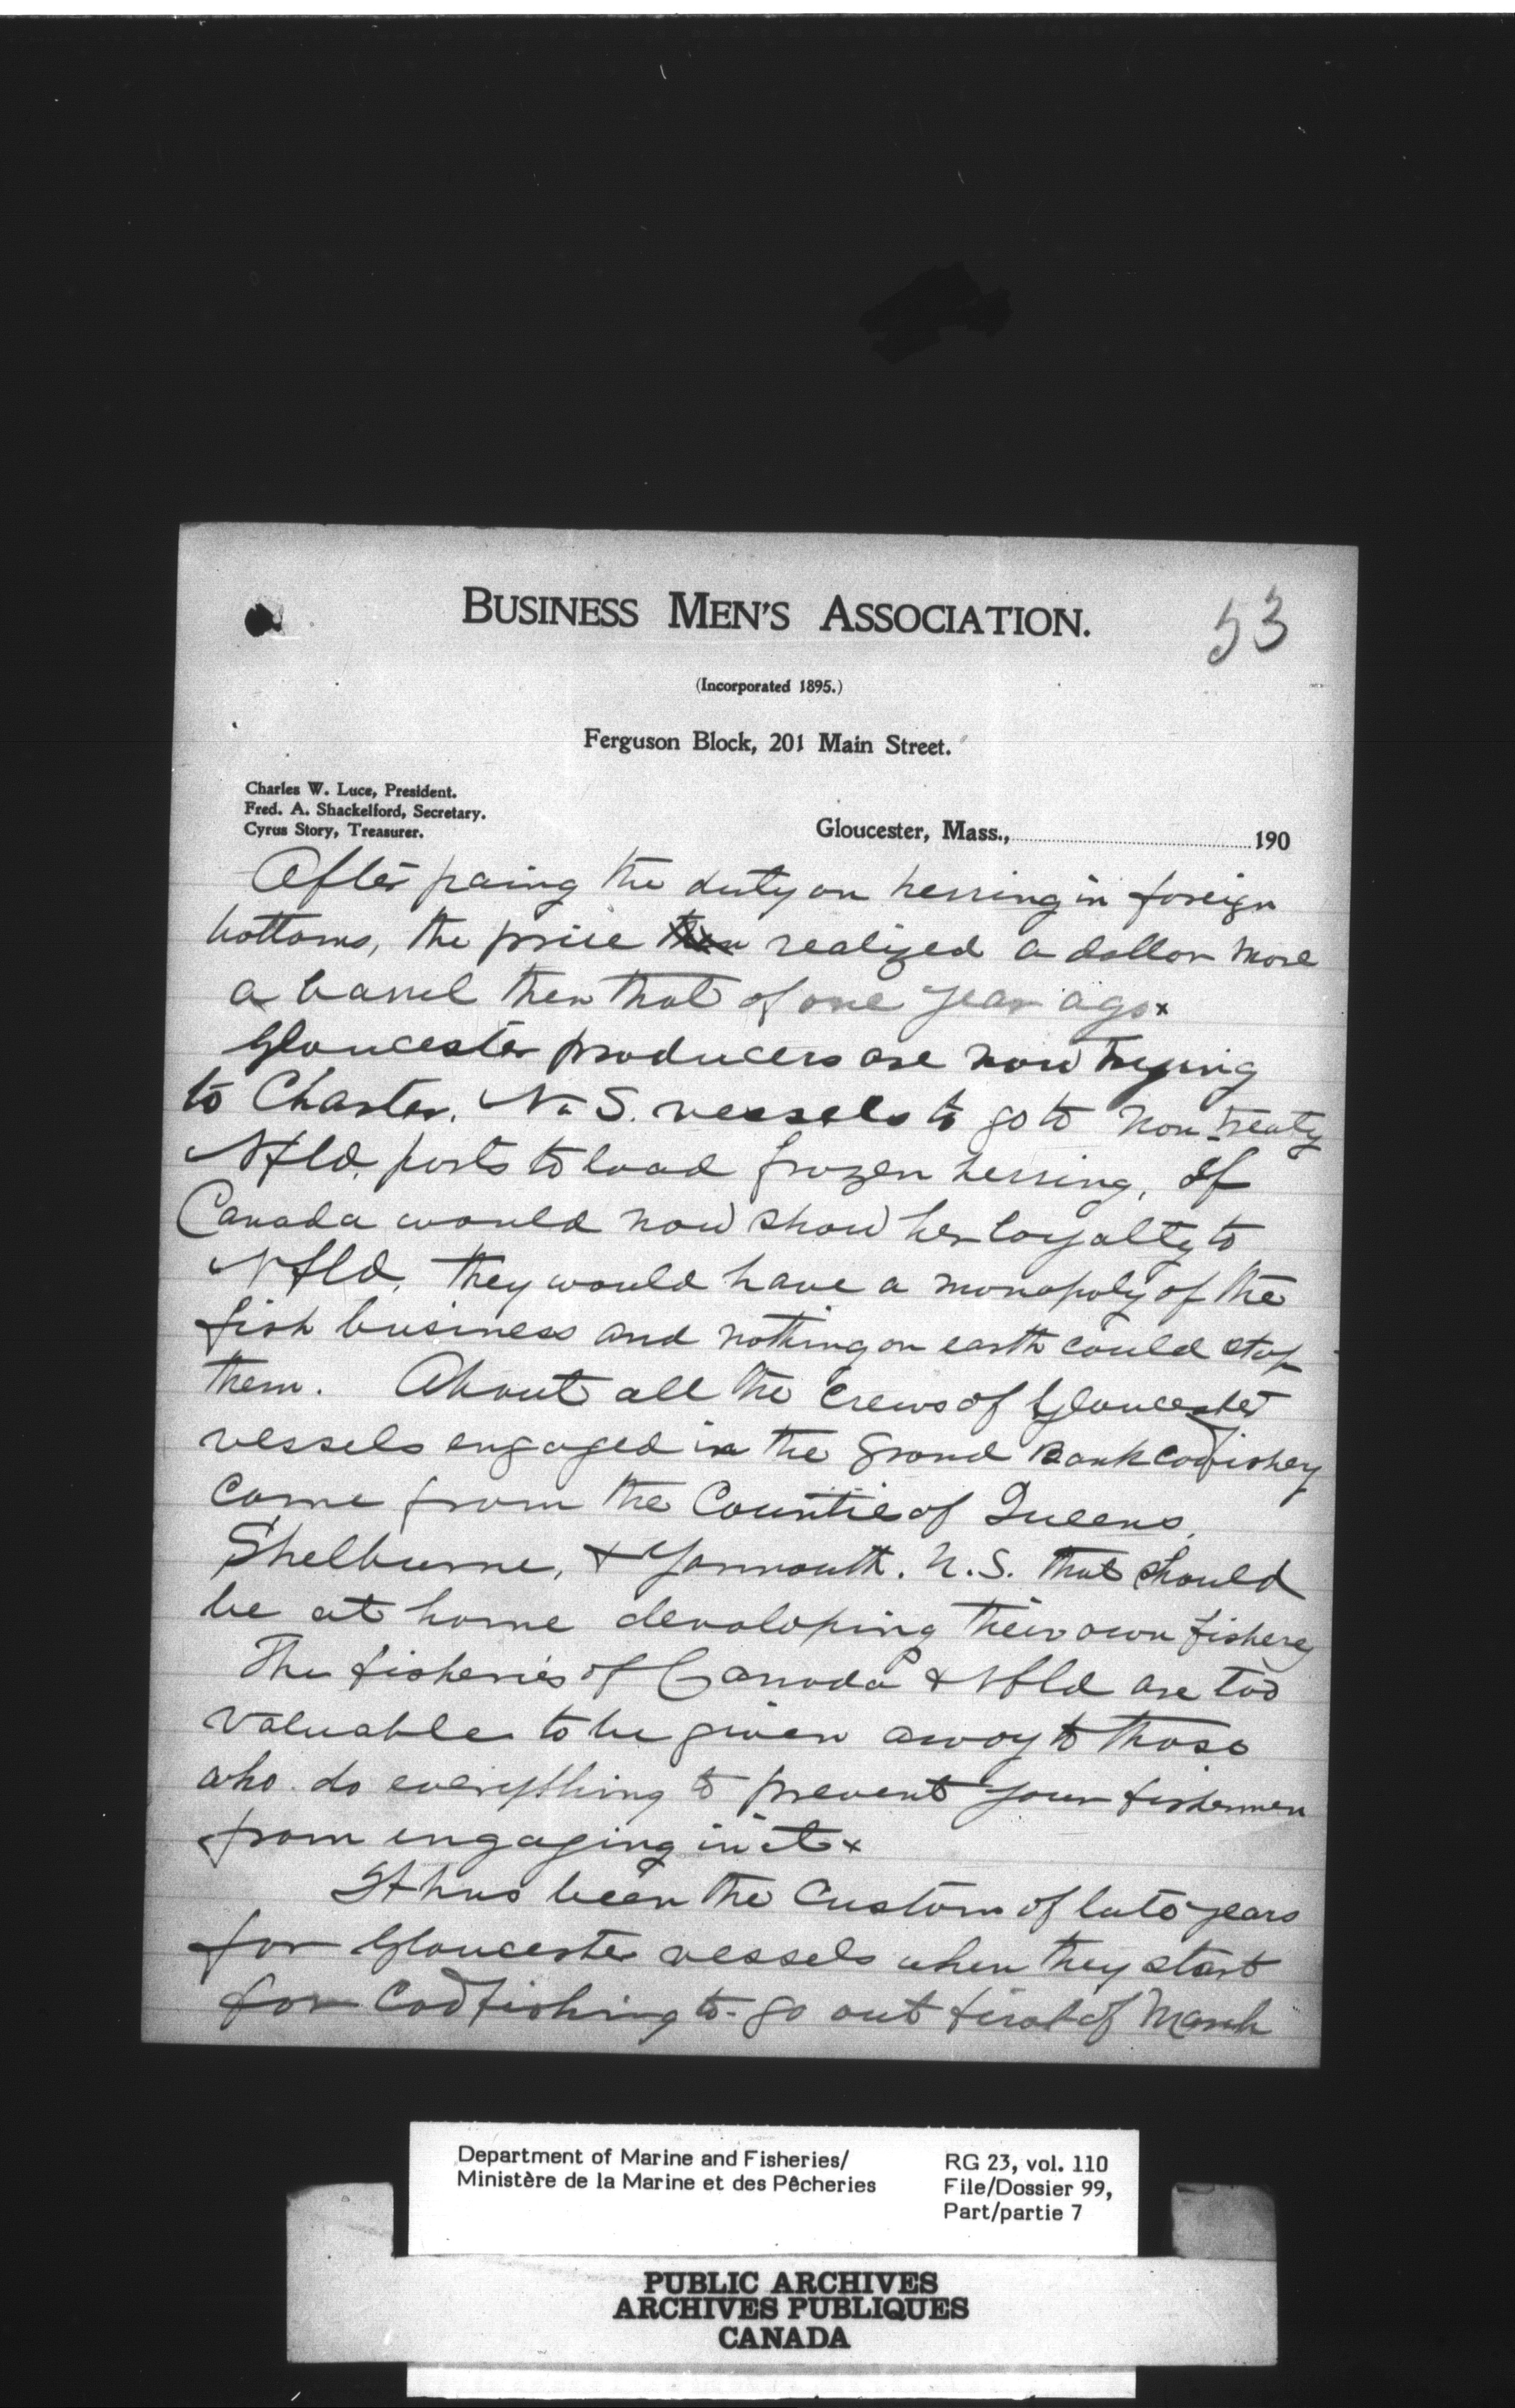 BUSINESS MEN'S ASSOCIATION.
53
(Incorporated 1895.)
Ferguson Block, 201 Main Street.
Charles W. Luce, President.
Fred. A. Shackelford, Secretary.
Cyrus Story, Treasurer.
Gloucester, Mass., 190
After paing the duty on herring in foreign
bottoms, the price realized a dollar more
a barrel then that of one year ago x
Gloucester producers are now trying
to Charter. N. S. vessels to go to non-treaty
Nfld. ports to load frozen herring, If
Canada would now show her loyalty to
Nfld, they would have a monopoly of the
fish business and nothing on earth could stop
them. About all the crews of Gloucester
vessels engaged in the Grand Bank codfishery
come from the Countie of Queens,
Shelburne, & Yarmouth. N.S. that should
be at home devaloping their own fishery
The fisheries of Canada & Nfld are too
valuable to be given away to those
who do everything to prevent your fishermen
from engaging in it x
It has been the custom of late years
for Gloucester vessels when they start
for Codfishing to go out first of March
Department of Marine and Fisheries/
Ministère de la Marine et des Pêcheries
RG 23, vol. 110
File/Dossier 99,
Part/partie 7
PUBLIC ARCHIVES
ARCHIVES PUBLIQUES
CANADA